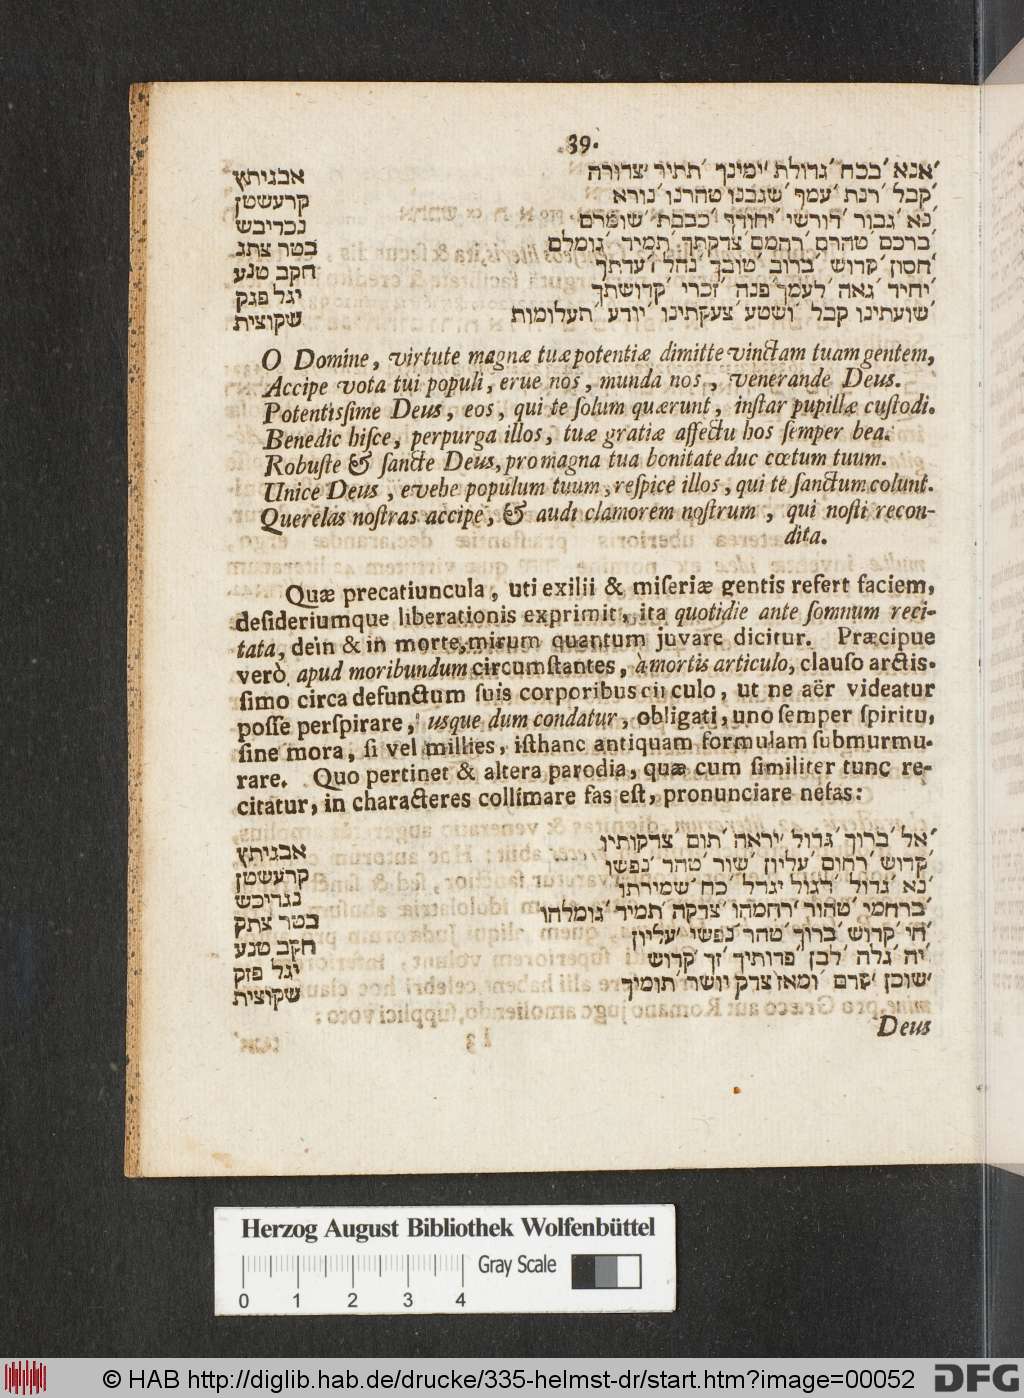 39.
אנא׳ בכח׳ גדולת׳ ימינך׳ תתיר׳ צרורה׳ אבגיתץ
קבל׳ רנת׳ עמך׳ שגבנו׳ טהרנו׳ נורא׳ קרעשטן
נא׳ גבור׳ דורשי׳ יחודך׳ כבבת׳ שומרם נכדיבש
ברכם׳ טהרם׳ רחמם׳ צדקתך׳ תמיד׳ גומלם בטר צתג
חסון׳ קדוש׳ ברוב׳ טובך׳ נהל׳ עדתך׳ חקב טנע
יחיד׳ גאה׳ לעמך׳ פנה׳ זכרי׳ קדושתך יגל פגק
שועתינו׳ קבל׳ ושטע׳ צעקתינו׳ יודע׳ תעלומות שקוצית
O Domine, virtute magnæ tuæ potentiæ dimitte vinctam tuam gentem,
Accipe vota tui populi, erue nos, munda nos, venerande Deus.
Potentissime Deus, eos, qui te solum quærunt, instar pupillæ custodi.
Benedic hisce, perpurga illos, tuæ gratiæ affectu hos semper bea.
Robuste & sancte Deus, pro magna tua bonitate duc cœtum tuum.
Unice Deus, evehe populum tuum, respice illos, qui te sanctum colunt.
Querelas nostras accipe, & audi clamorem nostrum, qui nosti recon-
dita.
Quæ precatiuncula, uti exilii & miseriæ gentis refert faciem,
desideriumque liberationis exprimit, ita quotidie ante somnum reci-
tata, dein & in morte, mirum quantum juvare dicitur. Præcipue
verò apud moribundum circumstantes, à mortis articulo, clauso arctis-
simo circa defunctum suis corporibus circulo, ut ne aër videatur
posse perspirare, usque dum condatur, obligati, uno semper spiritu,
sine mora, si vel millies, isthanc antiquam formulam submurmu-
rare. Quo pertinet & altera parodia, quæ cum similiter tunc re-
citatur, in characteres collimare fas est, pronunciare nefas:
אל׳ ברוך׳ גדול׳ יראה׳ תום׳ צדקותיו אבגיתץ
קדוש׳ רחום׳ עליון׳ שור׳ טהר׳ נפשו קרעשטן
נא׳ גדול׳ דגול׳ יגדל׳ כח׳ שמירתו נגדיכש
ברחמי׳ טהור׳ רחמהו׳ צדקה׳ תמיד׳ גומלהו בטר צתק
חי׳ קדוש׳ ברוך׳ טהר׳ נפשי׳ עליון חקב טנע
יה׳ גלה׳ לבן׳ פדותיך׳ זך׳ קדוש יגל פזק
שוכן׳ קדם׳ ומאז׳ צדק׳ יושר׳ תומיך שקוצית
Deus
Herzog August Bibliothek Wolfenbüttel
Gray Scale
0 1 2 3 4
© HAB http://diglib.hab.de/drucke/335-helmst-dr/start.htm?image=00052
DFG